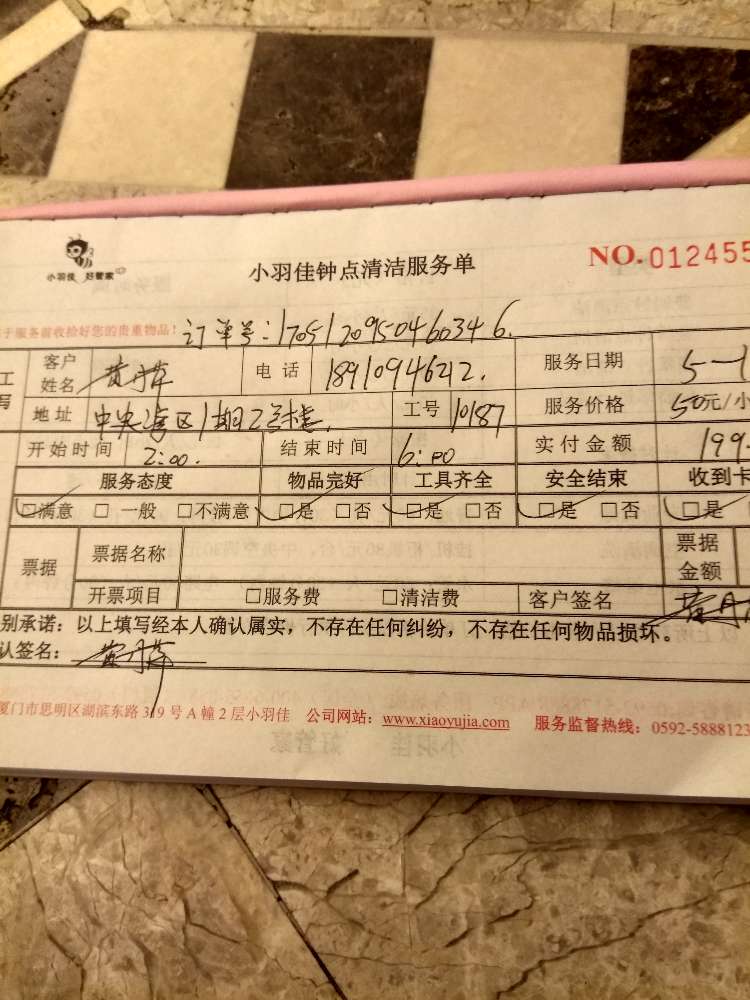 小羽佳 好管家
小羽佳钟点清洁服务单
NO.012455
于服务前收拾好您的贵重物品！ 订单号：
客户姓名 电话 服务日期 5-1
地址 中央湾区1期2号楼 工号 10187 服务价格 50元/小
开始时间 2:00. 结束时间 6:00 实付金额 199
服务态度 物品完好 工具齐全 安全结束 收到卡
☑满意 □ 一般 □不满意 ☑是 □否 ☑是 □否 ☑是 □否 ☑是
票据 票据名称 票据金额
开票项目 □服务费 □清洁费 客户签名
别承诺：以上填写经本人确认属实，不存在任何纠纷，不存在任何物品损坏。
认签名：
厦门市思明区湖滨东路319号A幢2层小羽佳 公司网站：www.xiaoyujia.com 服务监督热线：0592-5888123